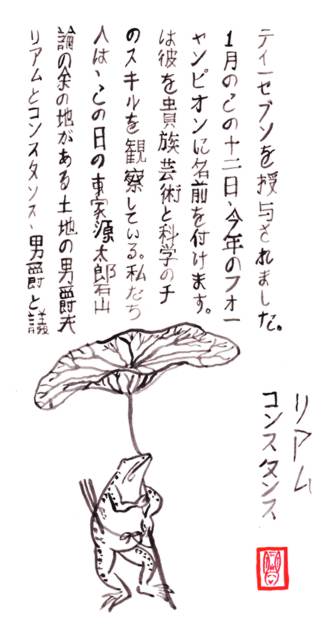 リアムとコンスタンス、男爵と議
論の余の地がある土地の男爵夫
人は、この日の東家源太郎石山
のスキルを観察している。私たち
は彼を貴族芸術と科学のチ
ャンピオンに名前を付けます。
1月のこの十二日、今年のフォー
ティーセブンを授与されました。
リアム
コンスタンス